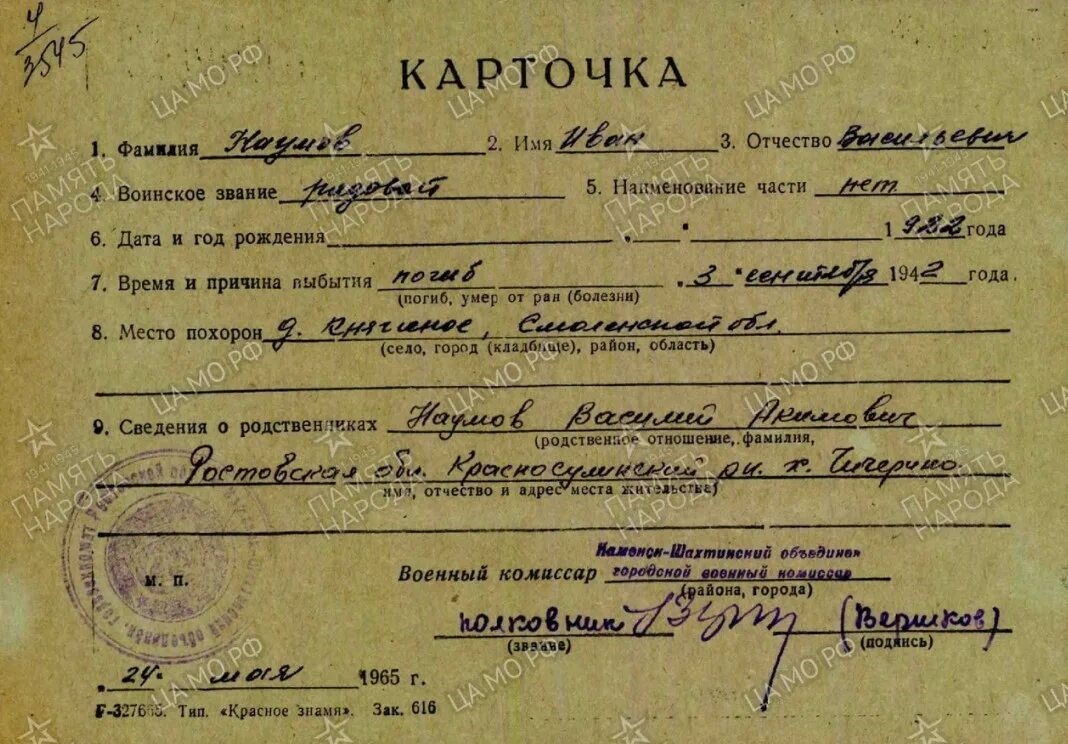 4/3545
КАРТОЧКА
1. Фамилия Наумов 2. Имя Иван 3. Отчество Васильевич
4. Воинское звание рядовой 5. Наименование части нет
6. Дата и год рождения 1922 года
7. Время и причина выбытия погиб "3" сентября 1942 года.
(погиб, умер от ран (болезни)
8. Место похорон д. Княжное, Смоленской обл.
(село, город (кладбище), район, область)
9. Сведения о родственниках Наумов Василий Акимович
(родственное отношение, фамилия,
Ростовская обл. Красносулинский рн. х. Чичерино
имя, отчество и адрес места жительства)
Каменск-Шахтинский объединен
Военный комиссар городской военный комиссар
(района, города)
м. п.
полковник (Вершков)
(звание) (подпись)
"24" мая 1965 г.
F-327665. Тип. «Красное знамя». Зак. 616
ЦА МО РФ
1941-1945
ПАМЯТЬ
НАРОДА